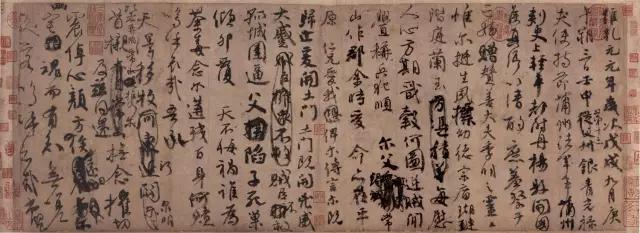 維乾元元年歲次戊戌九月庚
午朔三日壬申第十三叔銀青光祿
夫使持節蒲州諸軍事蒲州
刺史上輕車都尉丹楊縣開國
侯真卿以清酌庶羞祭于
亡姪贈贊善大夫季明之靈曰
惟爾挺生夙標幼德宗廟瑚璉
階庭蘭玉每慰
人心方期戩穀何圖逆賊閒
釁稱兵犯順爾父竭誠常
山作郡余時受命亦在平
原仁兄愛我俾爾傳言爾既
歸止爰開土門土門既開凶威
大蹙賊臣不救
孤城圍逼父陷子死巢
傾卵覆天不悔禍誰為
荼毒念爾遘殘百身何贖
嗚呼哀哉吾承
天澤移牧河關泉明
比者再陷常山攜爾
首櫬及茲同還撫念摧切
震悼心顏方俟遠日
爾幽宅魂而有知無嗟
久客嗚呼哀哉尚饗